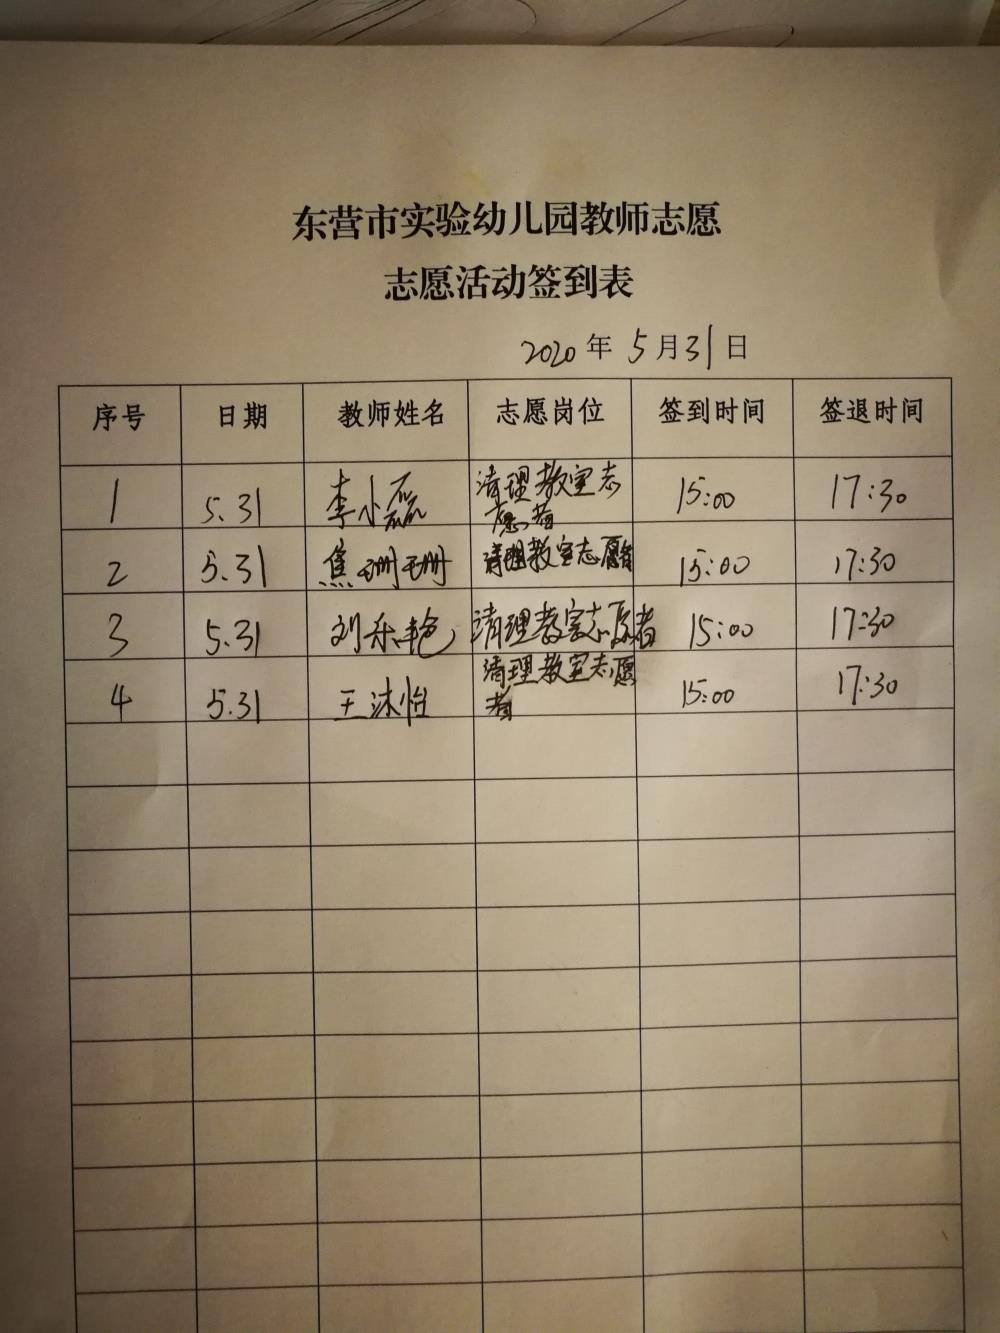 东营市实验幼儿园教师志愿
志愿活动签到表
2020 年 5 月 31 日
序号 日期 教师姓名 志愿岗位 签到时间 签退时间
1 5.31 李小磊 清理教室志愿者 15:00 17:30
2 5.31 焦珊珊 清理教室志愿者 15:00 17:30
3 5.31 刘乐艳 清理教室志愿者 15:00 17:30
4 5.31 王沐怡 清理教室志愿者 15:00 17:30